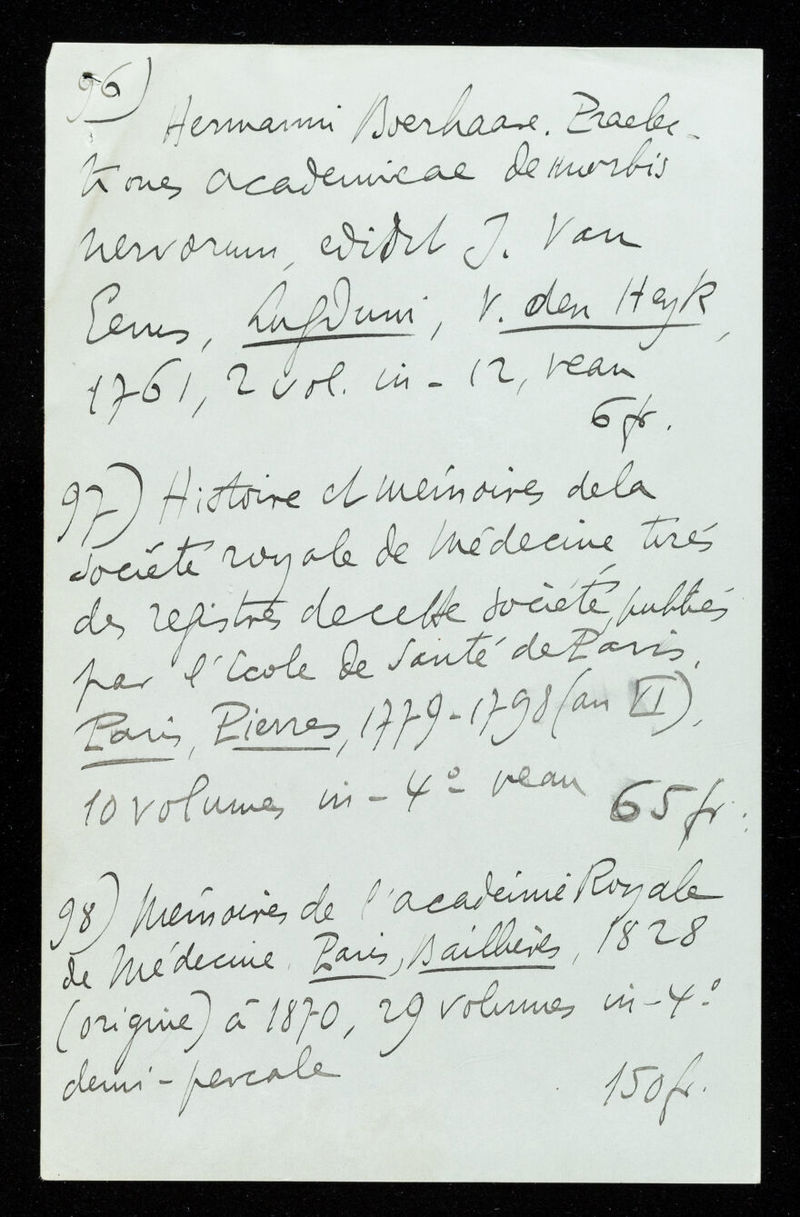 96)
Hermanni Boerhaave. Praelec-
tiones academicae de morbis
nervorum, edidit J. Van
Eems, Lugduni, V. den Heyk,
1761, 2 vol. in-12, veau
6 fr.
97) Histoire et mémoires de la
Société royale de Médecine, tirés
des registres de cette société, publiés
par l'école de Santé de Paris,
Paris, Pierres, 1779-1798 (an VI),
10 volumes in-4º veau 65 fr.
98) Mémoires de l'académie Royale
de Médecine. Paris, Baillière, 1828
(origine) à 1870, 29 volumes in-4º
demi-percale
150 fr.